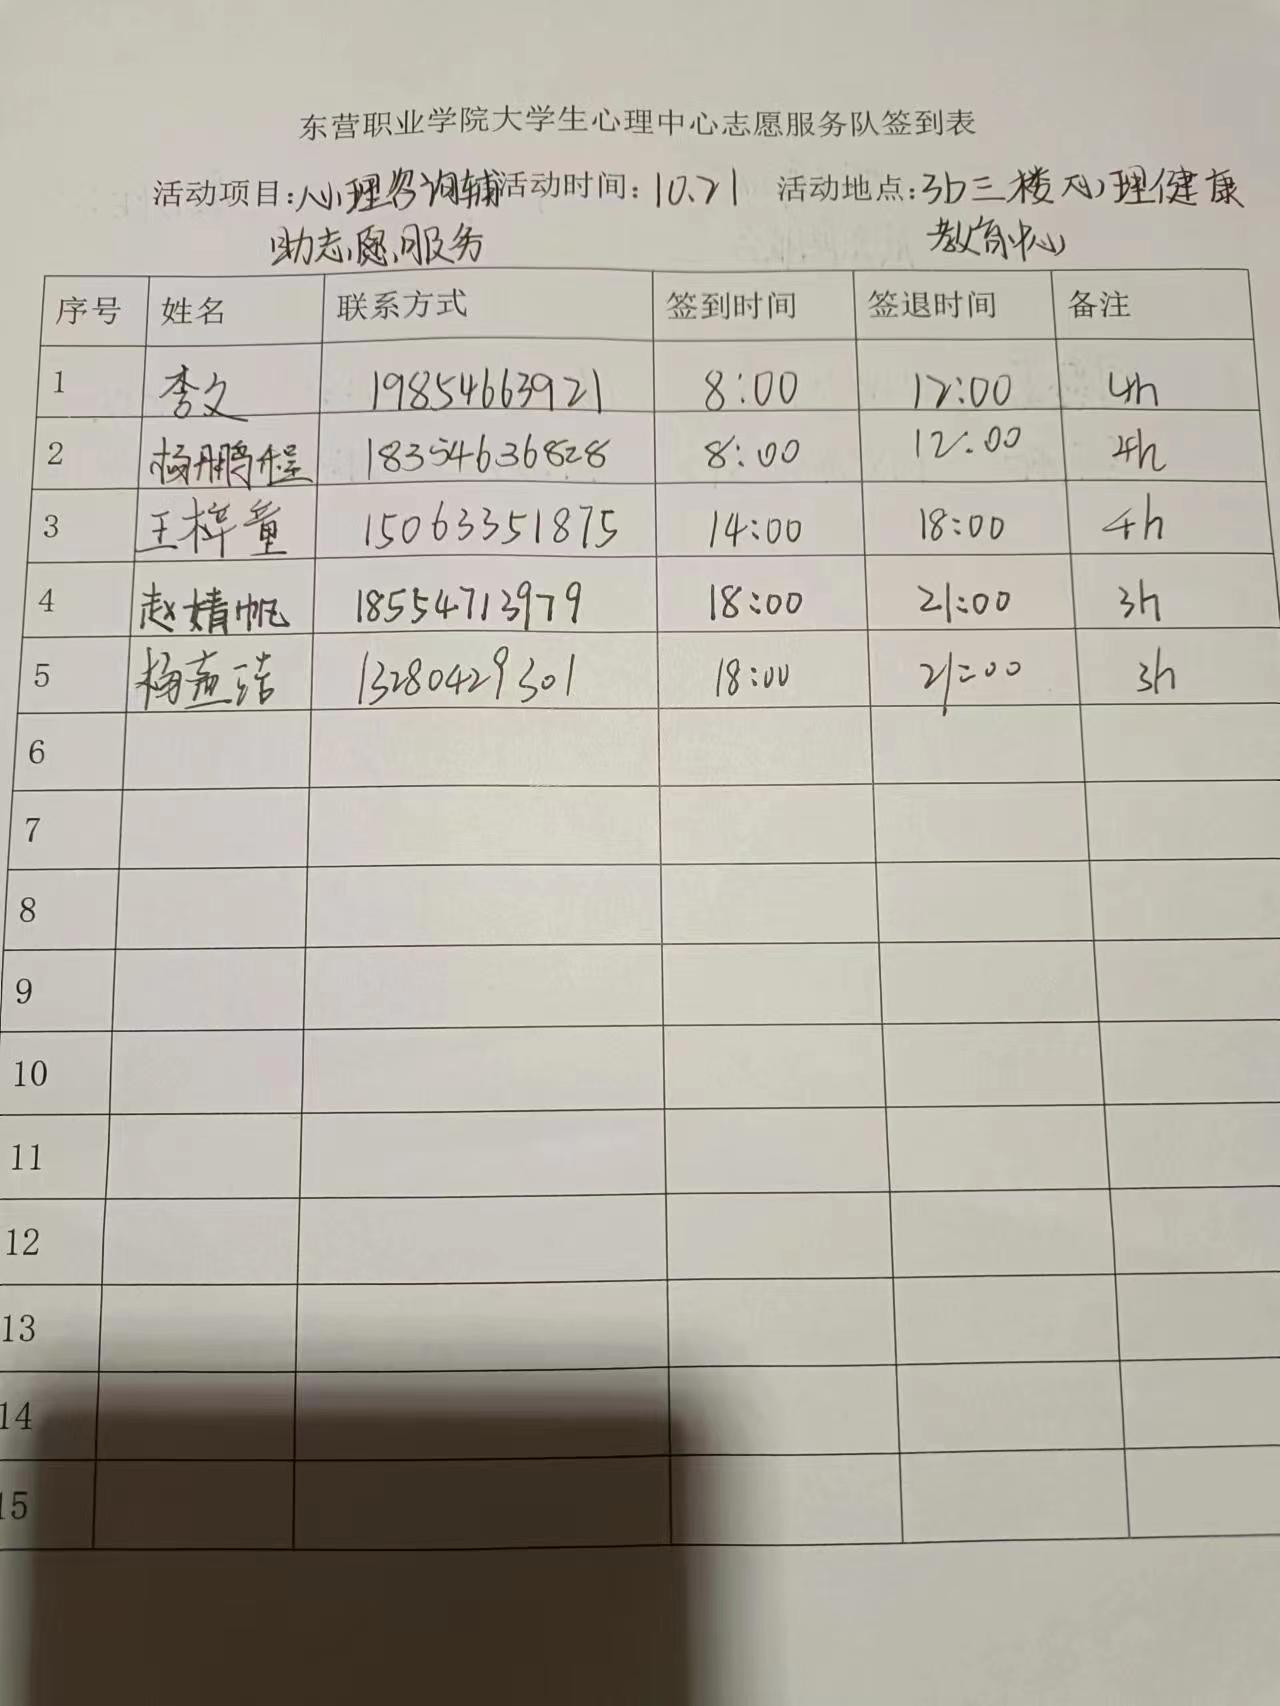 东营职业学院大学生心理中心志愿服务队签到表
活动项目：心理咨询辅 活动时间：10.21 活动地点：3b三楼心理健康
助志愿服务 教育中心
序号 姓名 联系方式 签到时间 签退时间 备注
1 李文 19854663921 8:00 12:00 4h
2 杨鹏程 18354636828 8:00 12:00 4h
3 王梓童 15063351875 14:00 18:00 4h
4 赵婧帆 18554713979 18:00 21:00 3h
5 杨 洁 13280429301 18:00 21:00 3h
6
7
8
9
10
11
12
13
14
15